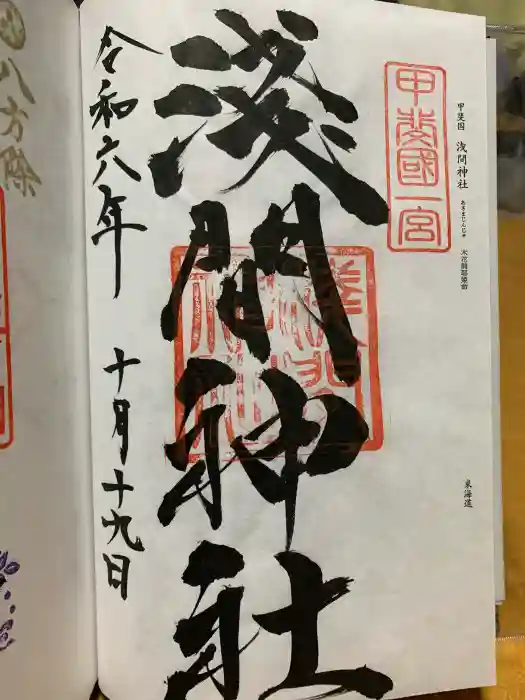 甲斐国 浅間神社 あさまじんじゃ
東海道
甲斐國一宮
淺間神社
令和六年 十月十九日
八方除